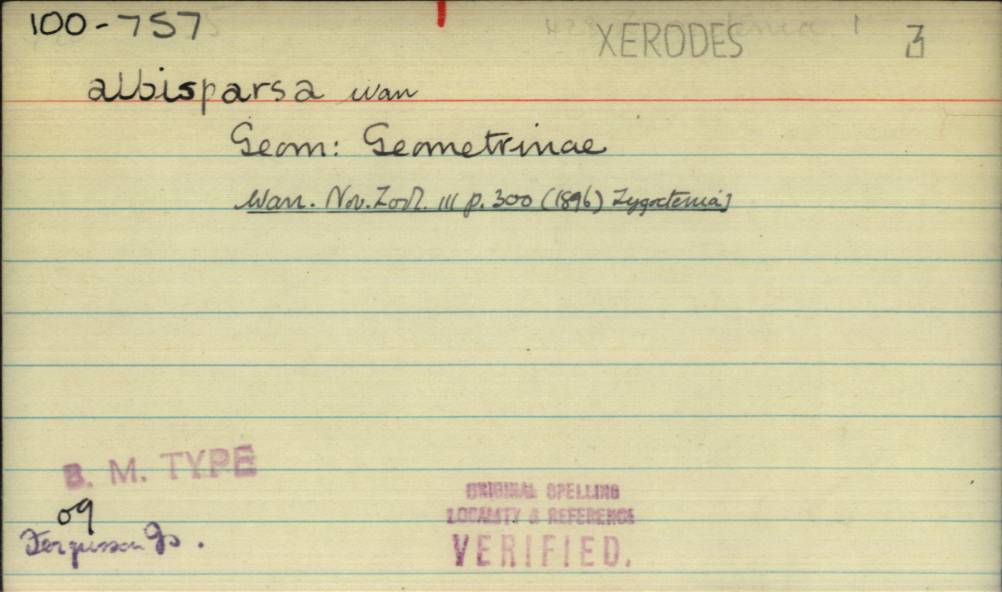 100-757
XERODES 3
albisparsa Warr
Geom: Geometrinae
Warr. Nov. Zool. III p. 300 (1896)
B. M. TYPE
Fergusson Is.
ORIGINAL SPELLING
LOCALITY & REFERENCE
VERIFIED.